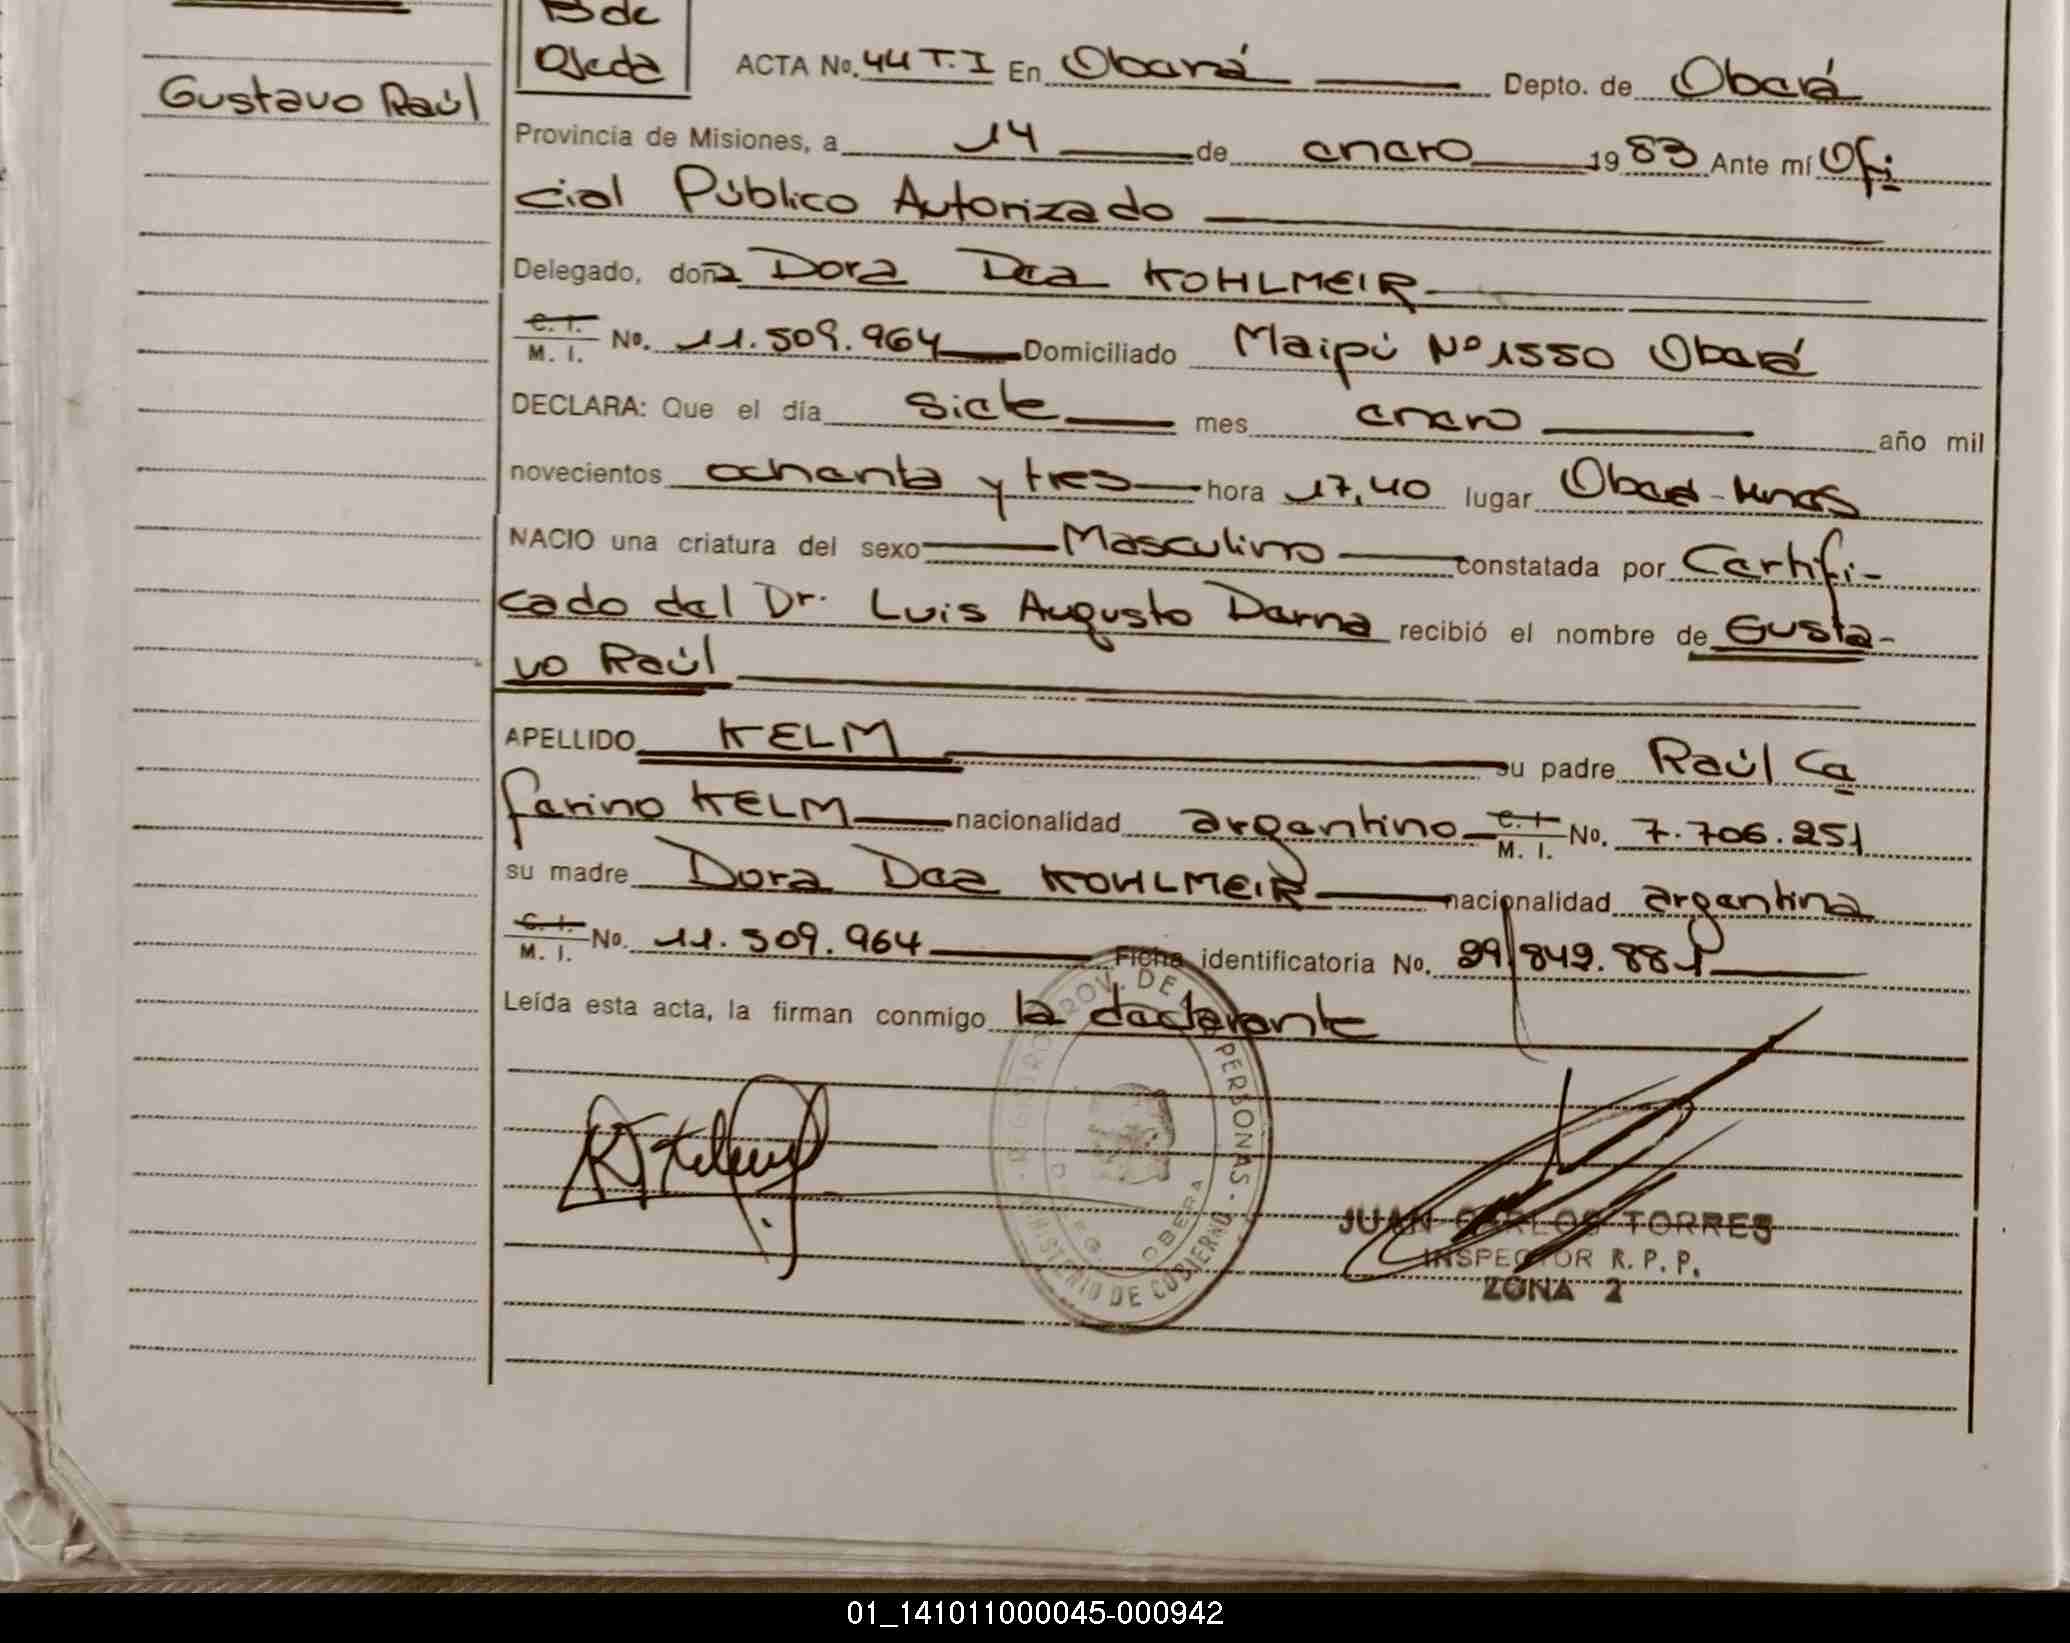 Bde
Ojeda
Gustavo Raúl
ACTA No. 44 T.I En Oberá Depto. de Oberá
Provincia de Misiones, a 14 de enero 1983 Ante mí Ofi
cial Público Autorizado
Delegado, doña Dora Dea KOHLMEIR
C. I.
M. I. No. 11.509.964 Domiciliado Maipú Nº 1550 Oberá
DECLARA: Que el día siete mes enero año mil
novecientos ochenta y tres hora 17,40 lugar Oberá - Mnes
NACIO una criatura del sexo Masculino constatada por Certifi-
cado del Dr. Luis Augusto Derna recibió el nombre de Gusta-
vo Raúl
APELLIDO KELM su padre Raúl Ce
ferino KELM nacionalidad argentino C. I.
M. I. No. 7.706.251
su madre Dora Dea KOHLMEIR nacionalidad argentina
C. I.
M. I. No. 11.509.964 Ficha identificatoria No. 29.849.881
Leída esta acta, la firman conmigo la declarante
REGISTRO PROV. DE PERSONAS
MINISTERIO DE GOBIERNO
OBERA
JUAN CARLOS TORRES
INSPECTOR R. P. P.
ZONA 2
01_141011000045-000942